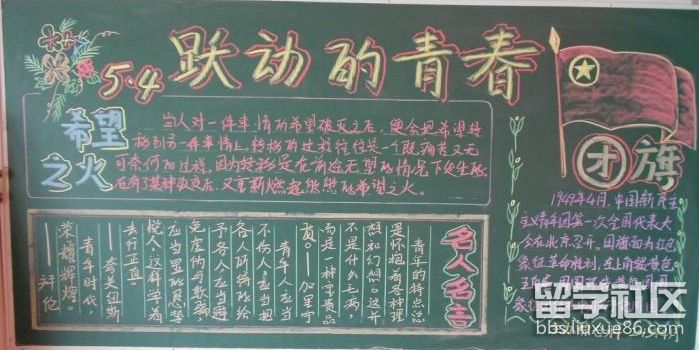 5.4 跃动的青春
希望
之火
当人对一件事情的希望破灭之后，便会把希望转
移到另一件事情上，转移的过程往往是一个既痛苦又无
可奈何的过程，因为转移是在前途无望的情况下发生的
在有了某种收获后，又重新燃起熊熊的希望之火。
名人名言
青年的特点总
是怀抱着各种理
想和幻想。这并
不是什么毛病，
而是一种宝贵品
质。——加里宁
青年人应当
不伤人，应当把
各人所得的给
予各人，应当避
免虚伪与欺骗，
应当显得恳挚
悦人，这样学着
去行正直。
——夸美纽斯
青年时代，
荣耀辉煌。
——拜伦
团旗
1949年4月，中国新民主
主义青年团第一次全国代表大
会在北京召开。团旗面为红色
象征革命胜利，左上角缀黄色
五角星
留学社区
bbs.liuxue86.com